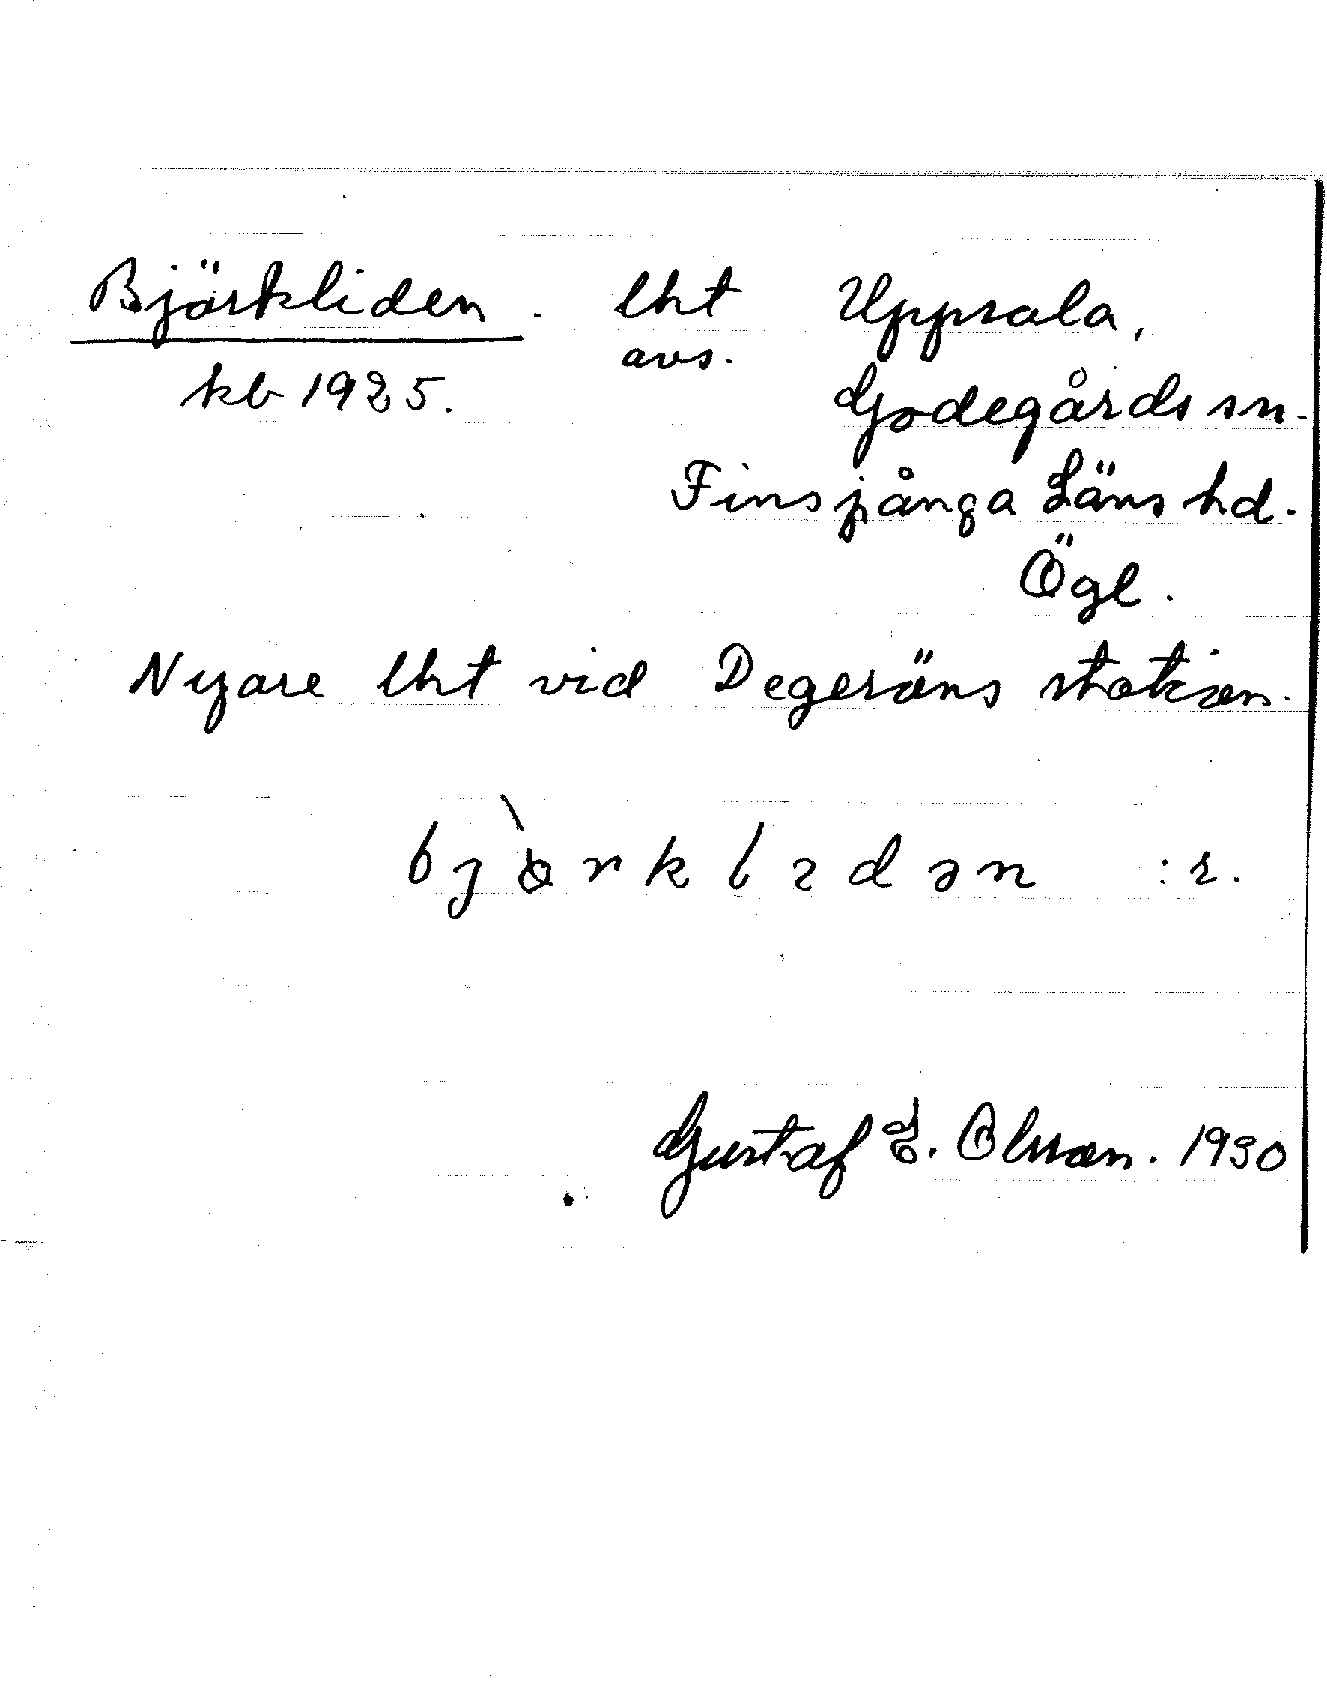 Björkliden. lht Uppsala,
avs.
kb 1925. Godegårds sn.
Finspånga Läns hd.
Ögl.
Nyare lht vid Degeröns station.
:r.
Gustaf E. Olsson. 1930